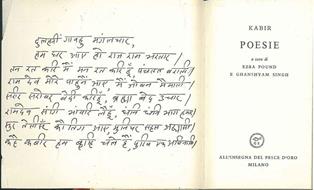 दुलहनीं गावहु मंगलचार,
हम घर आए हो राजा राम भरतार।
तन रत करि मैं मन रत करिहूँ, पंचतत बराती।
राम देव मोरे पाहुने आए, मैं जोबन मैमाती।
सरीर सरोवर बेदी करिहूँ, ब्रह्मा बेद उचार।
रामदेव संगि भांवरि लैहूँ, धंनि धंनि भाग हमार।
सुर तेतीसूँ कौतिग आए, मुनिवर सहस अठ्यासी।
कहै कबीर हम ब्याहि चले हैं, पुरिष एक अविनासी।
KABIR
POESIE
a cura di
EZRA POUND
E GHANSHYAM SINGH
ALL'INSEGNA DEL PESCE D'ORO
MILANO